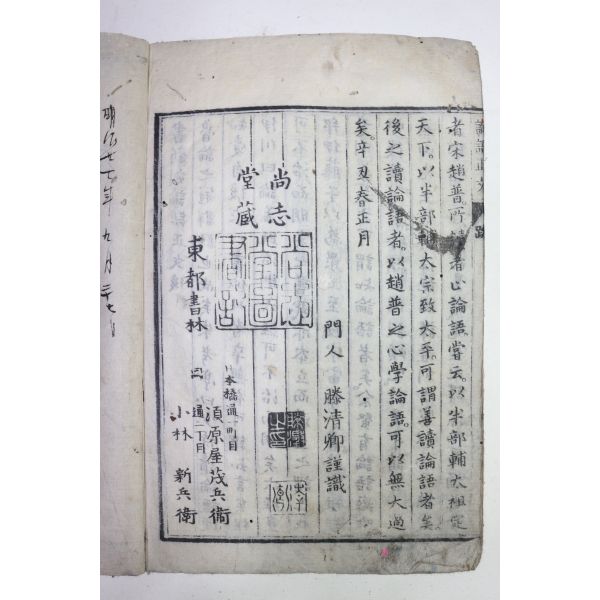 論語正文 跋
者宋趙普所讀者止論語嘗云以半部輔太祖定
天下以半部輔太宗致太平可謂善讀論語者矣
後之讀論語者以趙普之心學論語可以無大過
矣辛丑春正月
門人 滕清卿謹識
尚志
堂藏
東都書林
日本橋通一町目
須原屋茂兵衞
同通二丁目
小林 新兵衞
明治
年九月